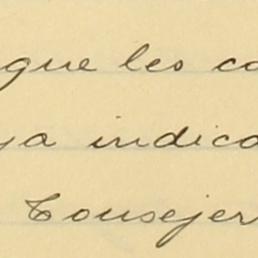 que les co
ya indica
Consejer